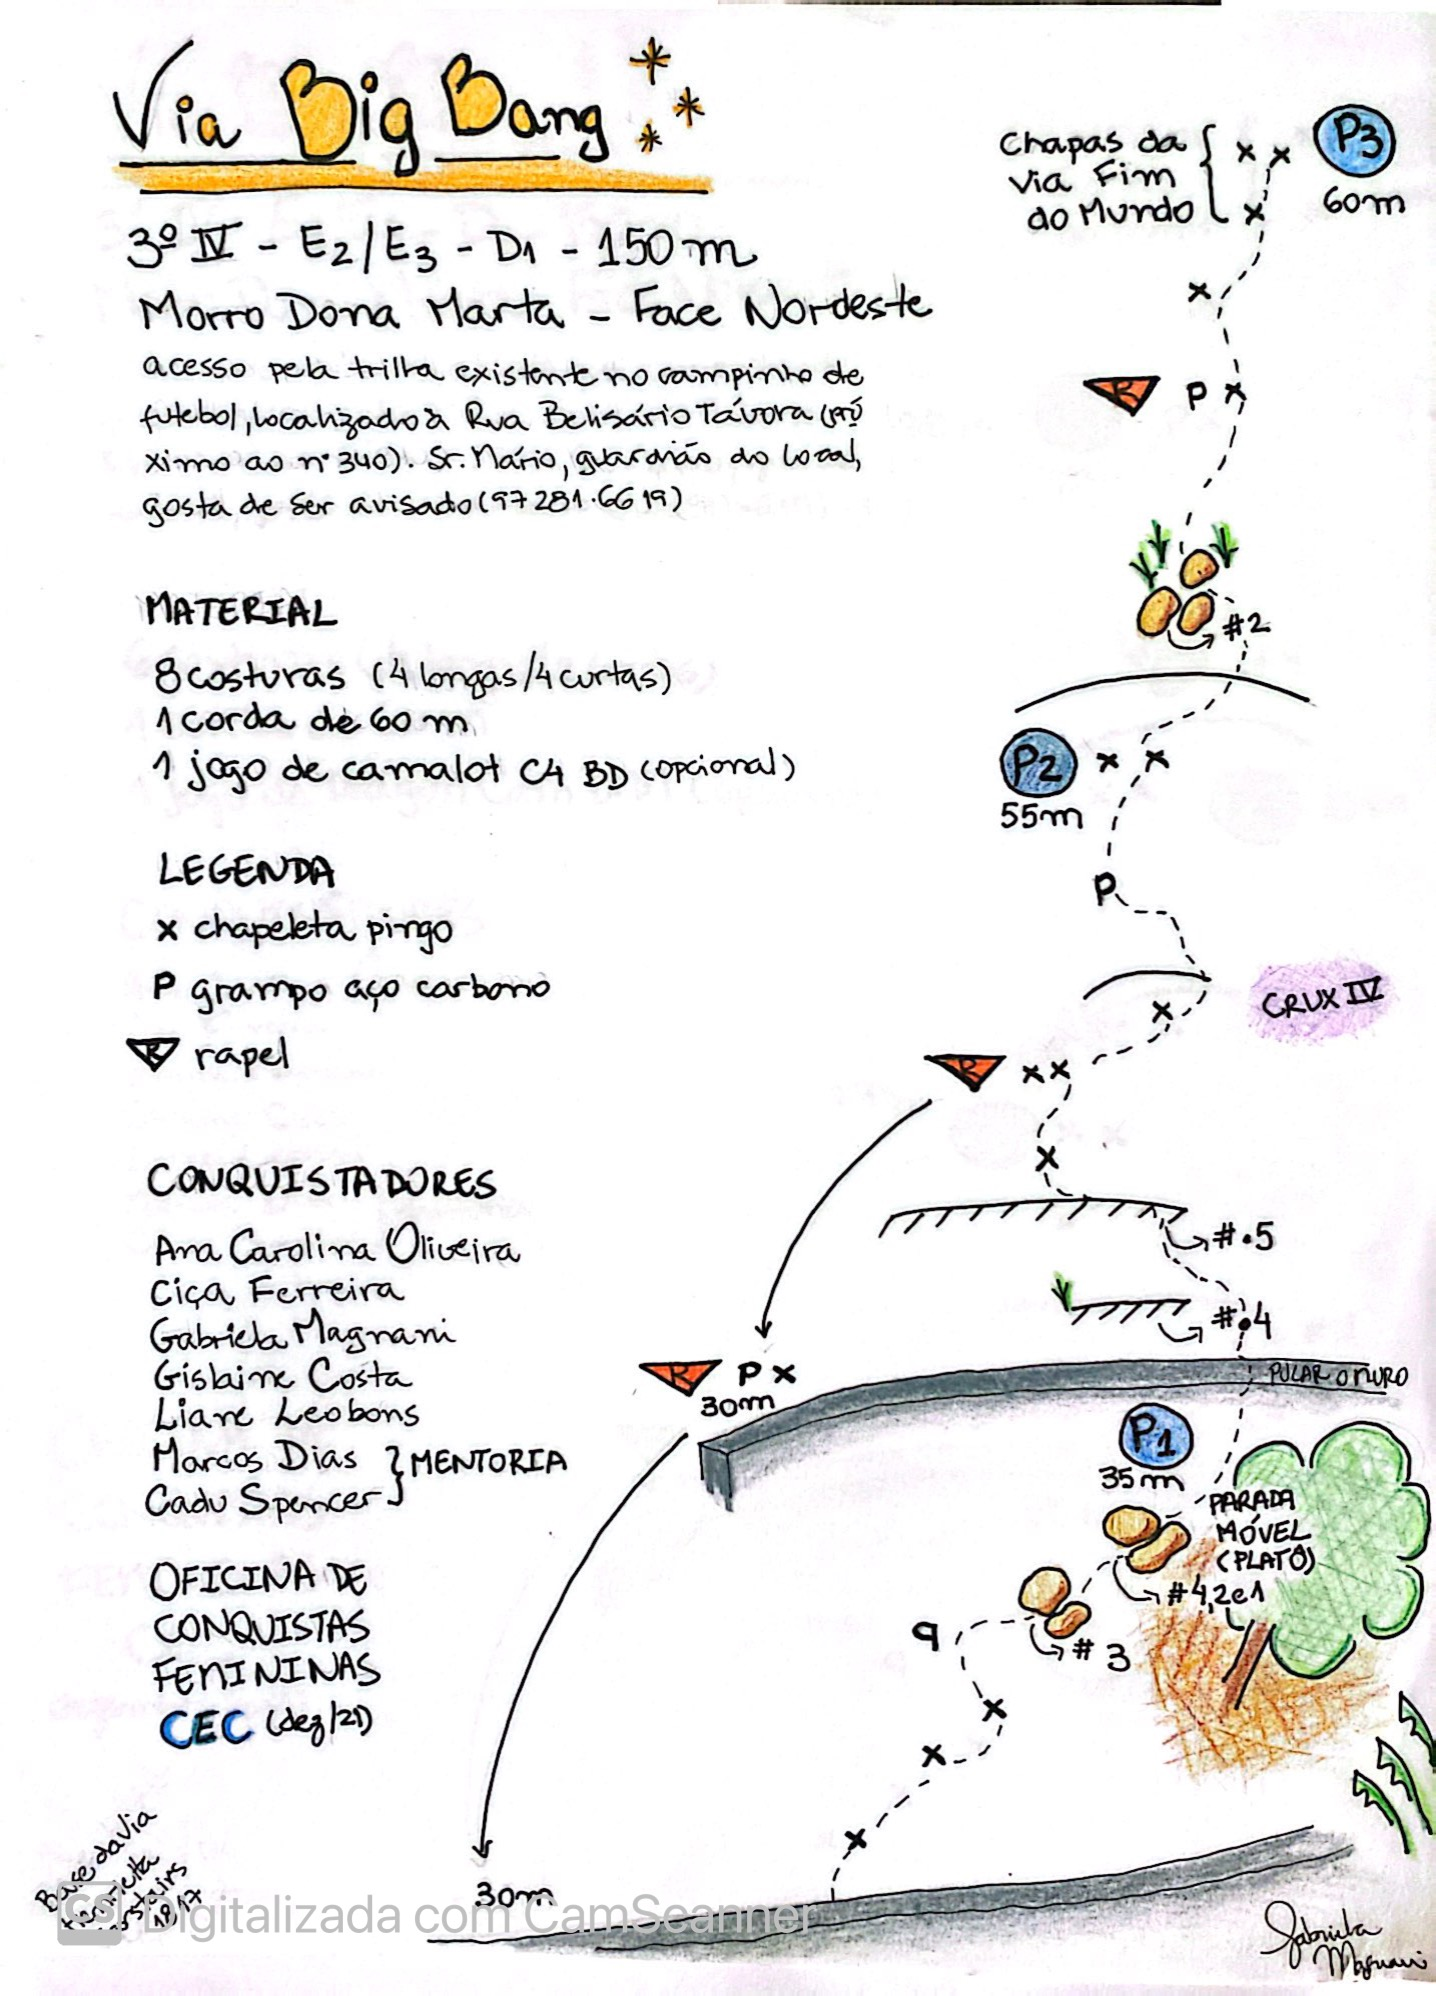 Via Big Bang
3º IV - E2/E3 - D1 - 150m
Morro Dona Marta - Face Nordeste
acesso pela trilha existente no campinho de
futebol, localizado à Rua Belisário Távora (pró
ximo ao nº 340). Sr. Mário, guardião do local,
gosta de ser avisado (97281.6619)
MATERIAL
8 costuras (4 longas/4 curtas)
1 corda de 60 m
1 jogo de camalot C4 BD (opcional)
LEGENDA
x chapeleta pingo
P grampo aço carbono
R rapel
CONQUISTADORES
Ana Carolina Oliveira
Ciça Ferreira
Gabriela Magnani
Gislaine Costa
Liane Leobons
Marcos Dias
Cadu Spencer
} MENTORIA
OFICINA DE
CONQUISTAS
FEMININAS
CEC (dez/21)
Base da Via
18/17
Chapas da
Via Fim
do Mundo
{ x x
x
P3
60m
x
R P x
#2
P2 x x
55m
P
CRUX IV
x
R x x
x
#.5
#.4
R P x
30m
PULAR O MURO
P1
35m
PARADA
MÓVEL
(PLATÔ)
#4,2e1
#3
q
x
x
x
30m
CS Digitalizada com CamScanner
Gabriela
Magnani